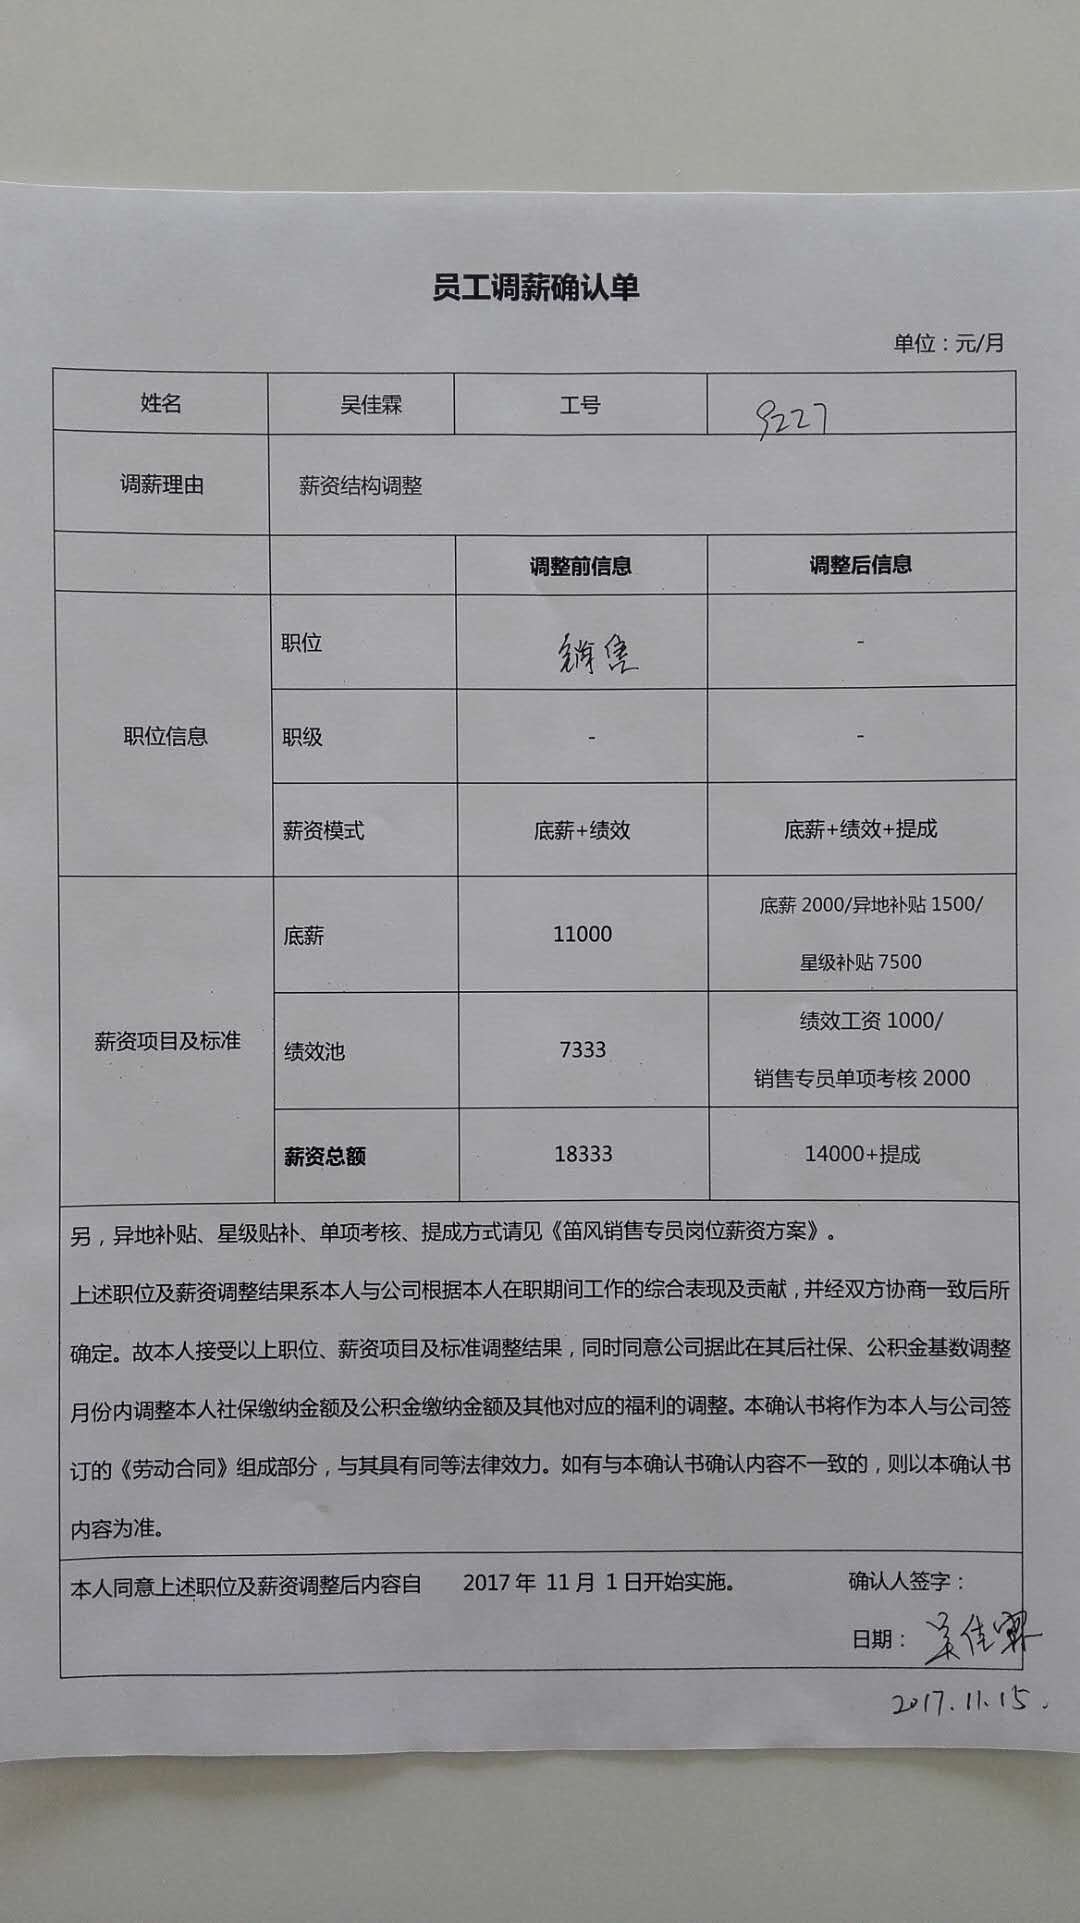 员工调薪确认单
单位：元/月
姓名 吴佳霖 工号 9227
调薪理由 薪资结构调整
调整前信息 调整后信息
职位信息 职位 销售 -
职级 - -
薪资模式 底薪+绩效 底薪+绩效+提成
薪资项目及标准 底薪 11000 底薪 2000/异地补贴 1500/
星级补贴 7500
绩效池 7333 绩效工资 1000/
销售专员单项考核 2000
薪资总额 18333 14000+提成
另，异地补贴、星级贴补、单项考核、提成方式请见《笛风销售专员岗位薪资方案》。
上述职位及薪资调整结果系本人与公司根据本人在职期间工作的综合表现及贡献，并经双方协商一致后所
确定。故本人接受以上职位、薪资项目及标准调整结果，同时同意公司据此在其后社保、公积金基数调整
月份内调整本人社保缴纳金额及公积金缴纳金额及其他对应的福利的调整。本确认书将作为本人与公司签
订的《劳动合同》组成部分，与其具有同等法律效力。如有与本确认书确认内容不一致的，则以本确认书
内容为准。
本人同意上述职位及薪资调整后内容自 2017 年 11 月 1 日开始实施。 确认人签字：
日期： 吴佳霖
2017.11.15.